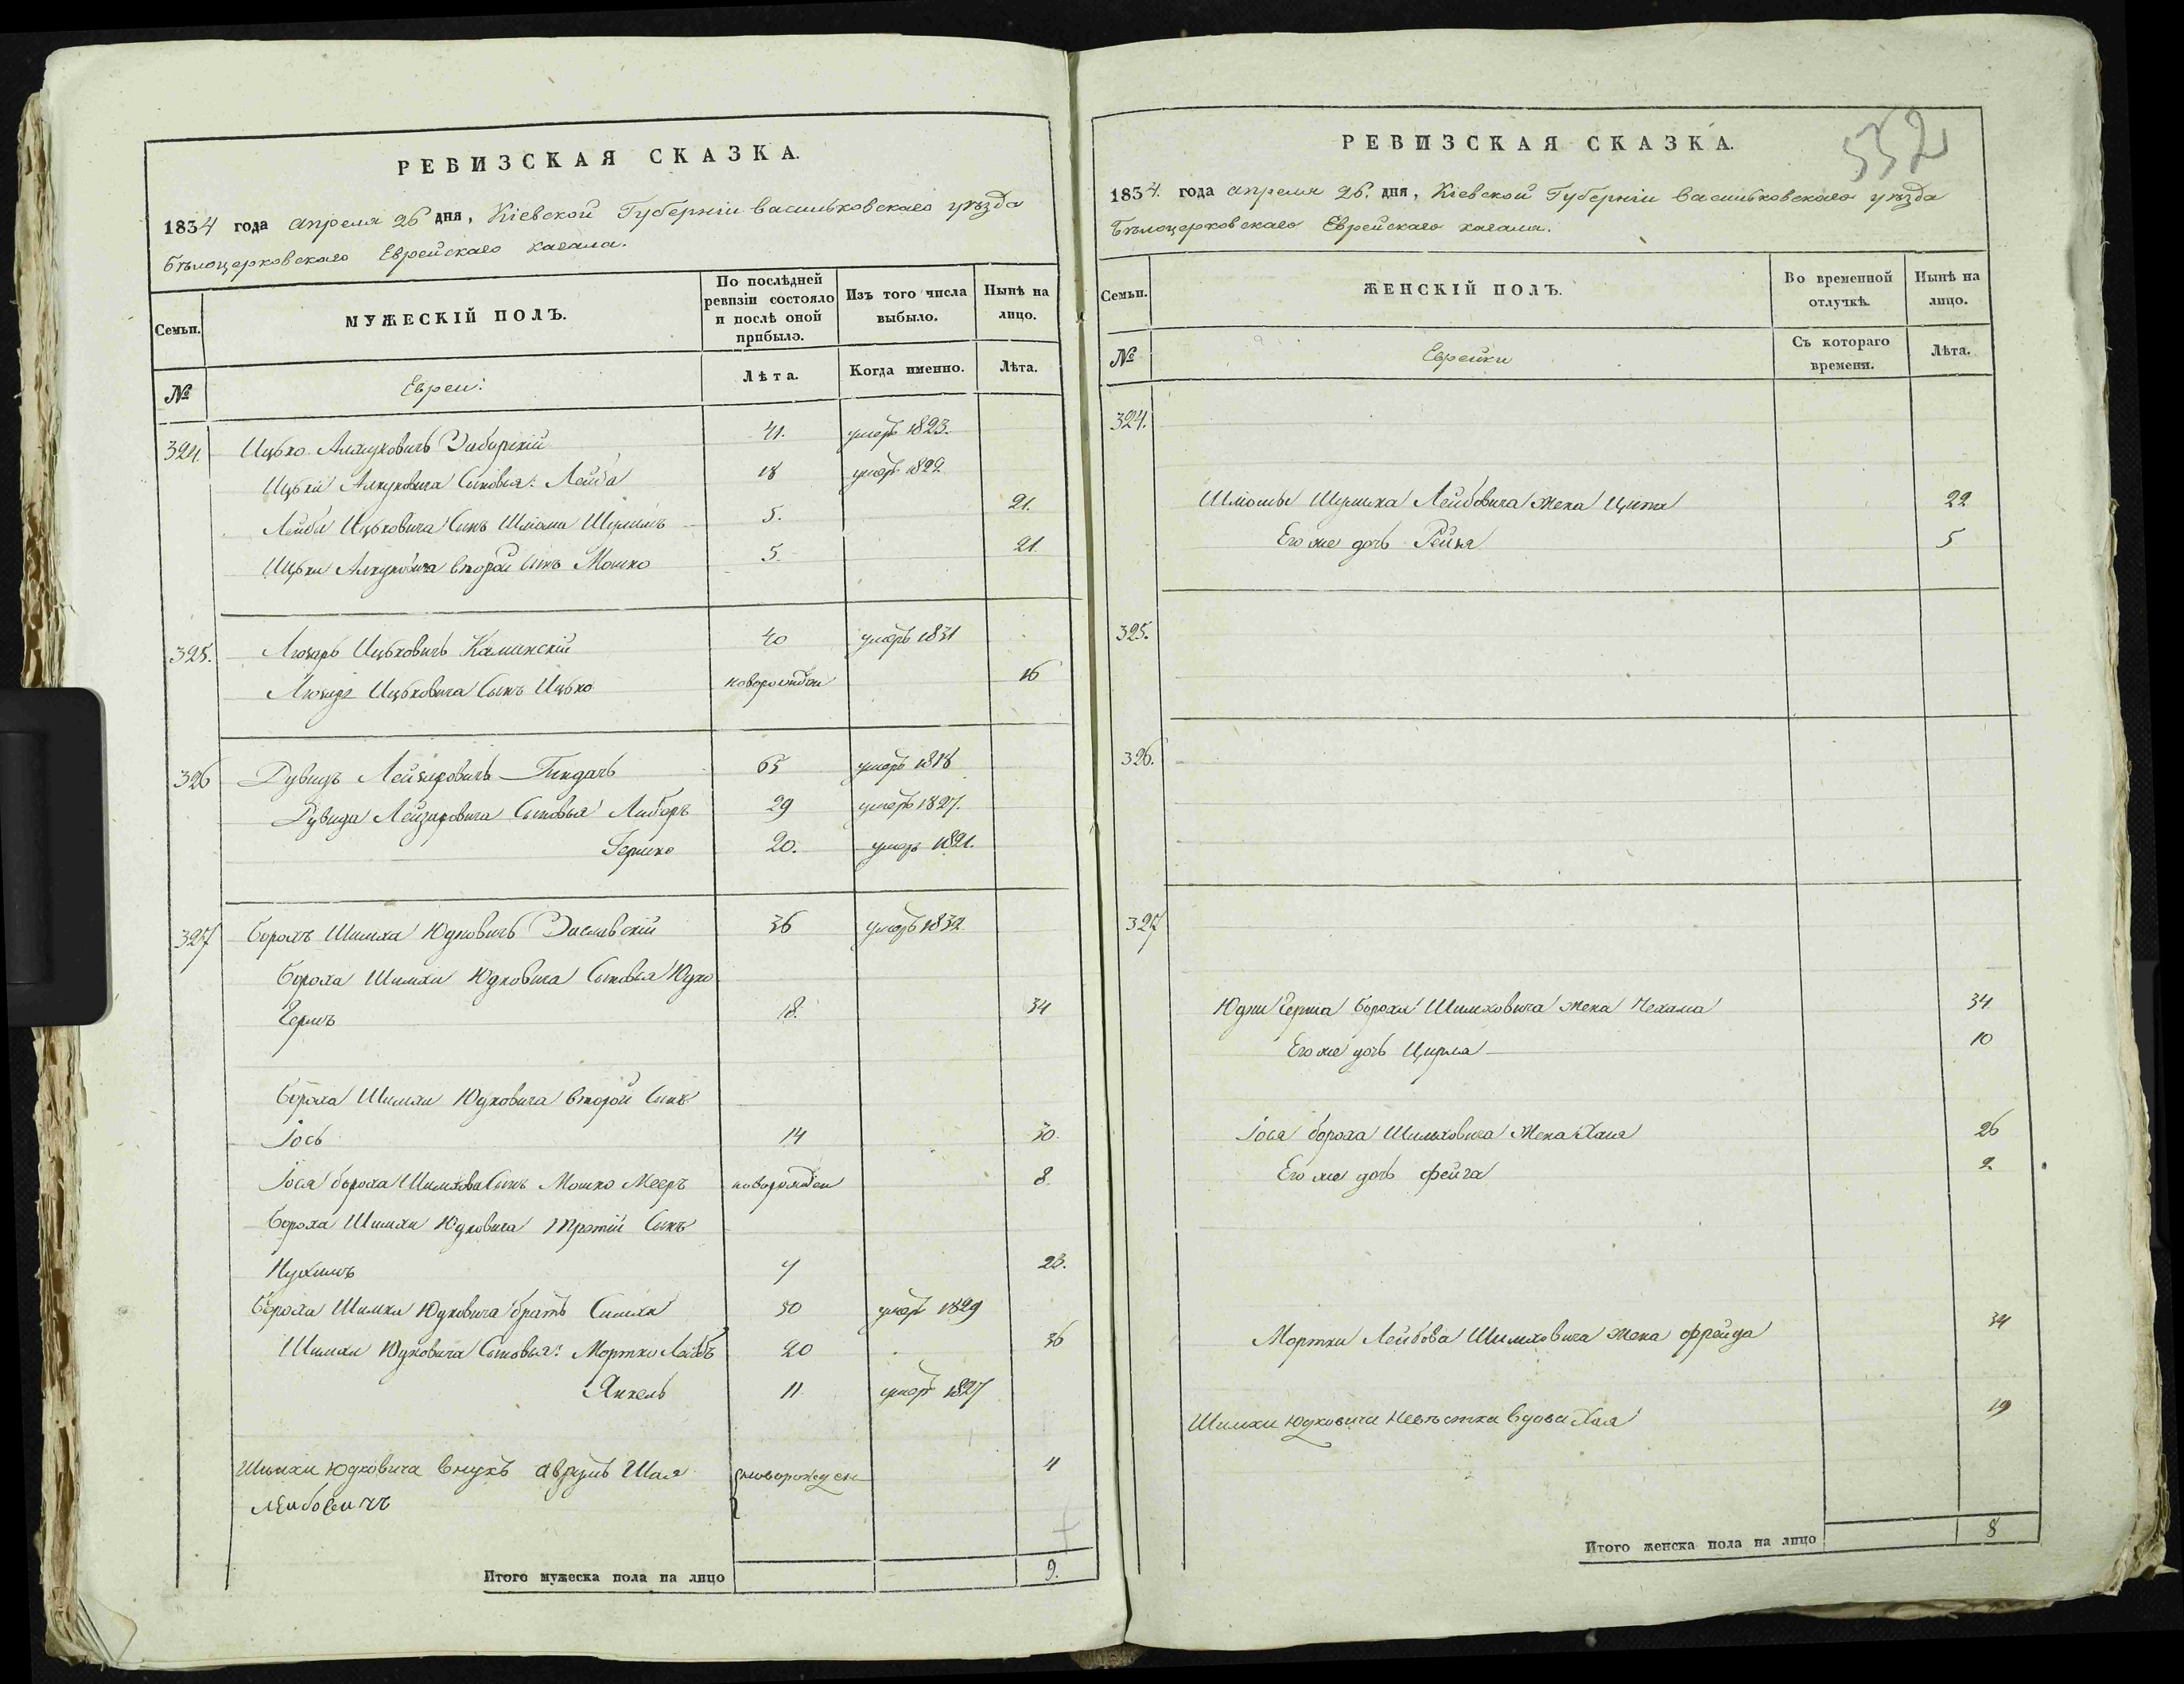 РЕВИЗСКАЯ СКАЗКА.
1834 года апреля 26 дня, Кіевской Губерніи васильковскаго уѣзда
бѣлоцерковскаго Еврейскаго кагала.
Семьи.
МУЖЕСКІЙ ПОЛЪ.
По послѣдней ревизіи состояло и послѣ оной прибыло.
Изъ того числа выбыло.
Нынѣ на лицо.
№
Евреи:
Лѣта.
Когда именно.
Лѣта.
324. Ицько 41. умеръ 1823.
Ицьки Сыновья: Лейба 18 умеръ 1822
Лейбы Ицьковича Сынъ Шліома Шулимъ 5. 21.
Ицьки второй сынъ Мошко 5. 21.
325. Лейзаръ Ицьковичъ Каминскій 40 умеръ 1831
Лейзара Ицьковича Сынъ Ицько новорожден 16
326 Дувидъ Лейзаровичъ 65 умеръ 1818
Дувида Лейзаровича Сыновья Либеръ 29 умеръ 1827.
Гершко 20. умеръ 1821.
327 Борохъ Шимха Юдковичъ Заславскій 36 умеръ 1832
Бороха Шимхи Юдковича Сыновья Юдко
Гершъ 18. 34
Бороха Шимхи Юдковича второй Сынъ
Іось 14 30.
Іося бороха Шимхова Сынъ Мошко Мееръ новорожден 8.
Бороха Шимхи Юдковича третій Сынъ
Нухимъ 7 23.
Бороха Шимхи Юдковича братъ Симха 50 умеръ 1829
Шимхи Юдковича Сыновья: Мортко Лейбъ 20 36
Янкель 11. умеръ 1827
Шимхи Юдковича внукъ аврумъ Шая новорожден 4
лейбовичъ
Итого мужеска пола на лицо 9.
РЕВИЗСКАЯ СКАЗКА.
532
1834. года апреля 26. дня, Кіевской Губерніи васильковскаго уѣзда
Бѣлоцерковскаго Еврейскаго кагала.
Семьи.
ЖЕНСКІЙ ПОЛЪ.
Во временной отлучкѣ.
Нынѣ на лицо.
№
Еврейки
Съ котораго времени.
Лѣта.
324.
Шліомы Шулима Лейбовича жена 22
Его же дочь Рейза 5
325.
326.
327
Юдки Герша Борохи Шимховича жена Нехама 34
Его же дочь Цирля 10
Іося бороха Шимховича Жена Хая 26
Его же дочь фейга 2.
Мортки Лейбова Шимховича жена фрейда 34
Шимхи юдковича невѣстка вдова Хая 19
Итого женска пола на лицо 8